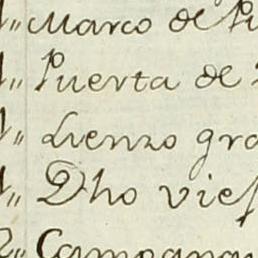 Marco de Pi
Puerta de
Lienzo gra
Dho vief
Campana